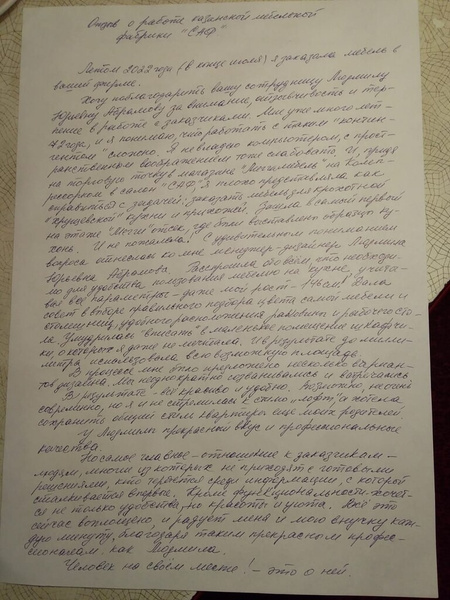 Отзыв о работе казанской мебельной
фабрики "САФ"
Летом 2022 года (в конце июля) я заказала мебель в
вашей фирме.
Хочу поблагодарить вашу сотрудницу Людмилу
Юрьевну Абрамову за внимание, отзывчивость и тер-
пение в работе с заказчиками. Мне уже много лет -
72 года, и я понимаю, что работать с таким "контин-
гентом" сложно. Я не владею компьютером, с прост-
ранственным воображением тоже слабовато. И, придя
на торговую точку в магазине "Мегамебель" на
в салон "САФ", я плохо представляла как
справиться с задачей: заказать мебель для крохотной
"хрущевской" кухни и прихожей. Зашла в самый первый
на этаже отсек, где было выставлено образцы ку-
хонь. И не пожалела! С удивительным пониманием
вопроса отнеслась ко мне менеджер-дизайнер Людмила
Юрьевна Абрамова. Расспросила обо всём, что необходи-
мо для удобства пользования мебелью на кухне, учиты-
вая все параметры - даже мой рост - 146 см! Дала
совет в выборе правильного подбора цвета самой мебели и
столешниц, удобного расположения раковины и рабочего сто-
ла. Умудрилась "вписать" в маленькое помещение шкафчи-
ки, о которых я даже не мечтала. И в результате до милли-
метра использовала всю возможную площадь.
В процессе мне было предложено несколько вариан-
тов дизайна. Мы неоднократно созванивались и встречались
В результате - всё красиво и удобно. Возможно, не очень
современно, но я и не стремилась к стилю "лофт", а хотела
сохранить общий стиль квартиры ещё моих родителей.
У Людмилы прекрасный вкус и профессиональные
качества.
Но самое главное - отношение к заказчикам -
людям, многие из которых не приходят с готовыми
решениями, кто теряется среди информации, с которой
сталкивается впервые. Кроме функциональности хочет-
ся не только удобства, но красоты и уюта. Всё это
сейчас воплощено, и радует меня и мою внучку каж-
дую минуту, благодаря таким прекрасным профес-
сионалам как Людмила.
Человек на своём месте! - это о ней.